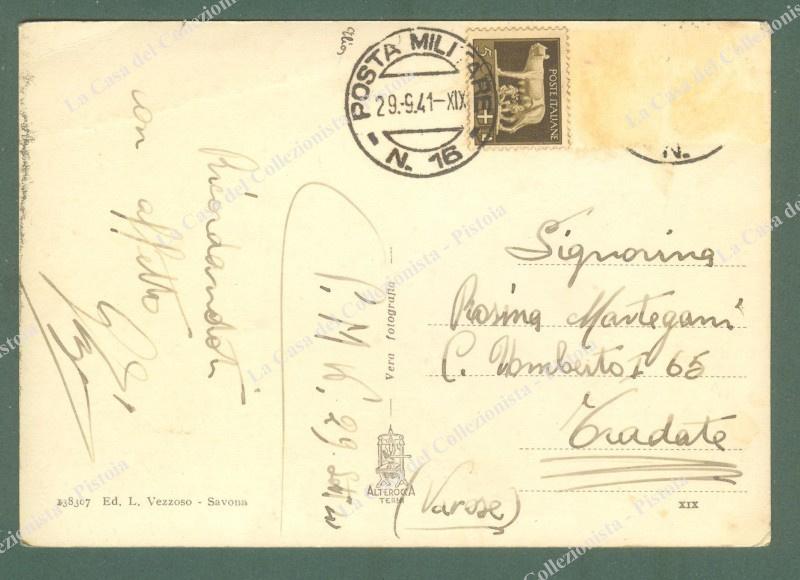 POSTA MILITARE
29.9.41-XIX
N. 16
5
POSTE ITALIANE
N.
Ricordandoti
con affetto
P. M. 16, 29
Vera fotografia
Signorina
Rosina Martegani
C. Umberto I 65
Tradate
(Varese)
ALTEROCCA
TERNI
138307 Ed. L. Vezzoso - Savona
XIX
La Casa del Collezionista - Pistoia